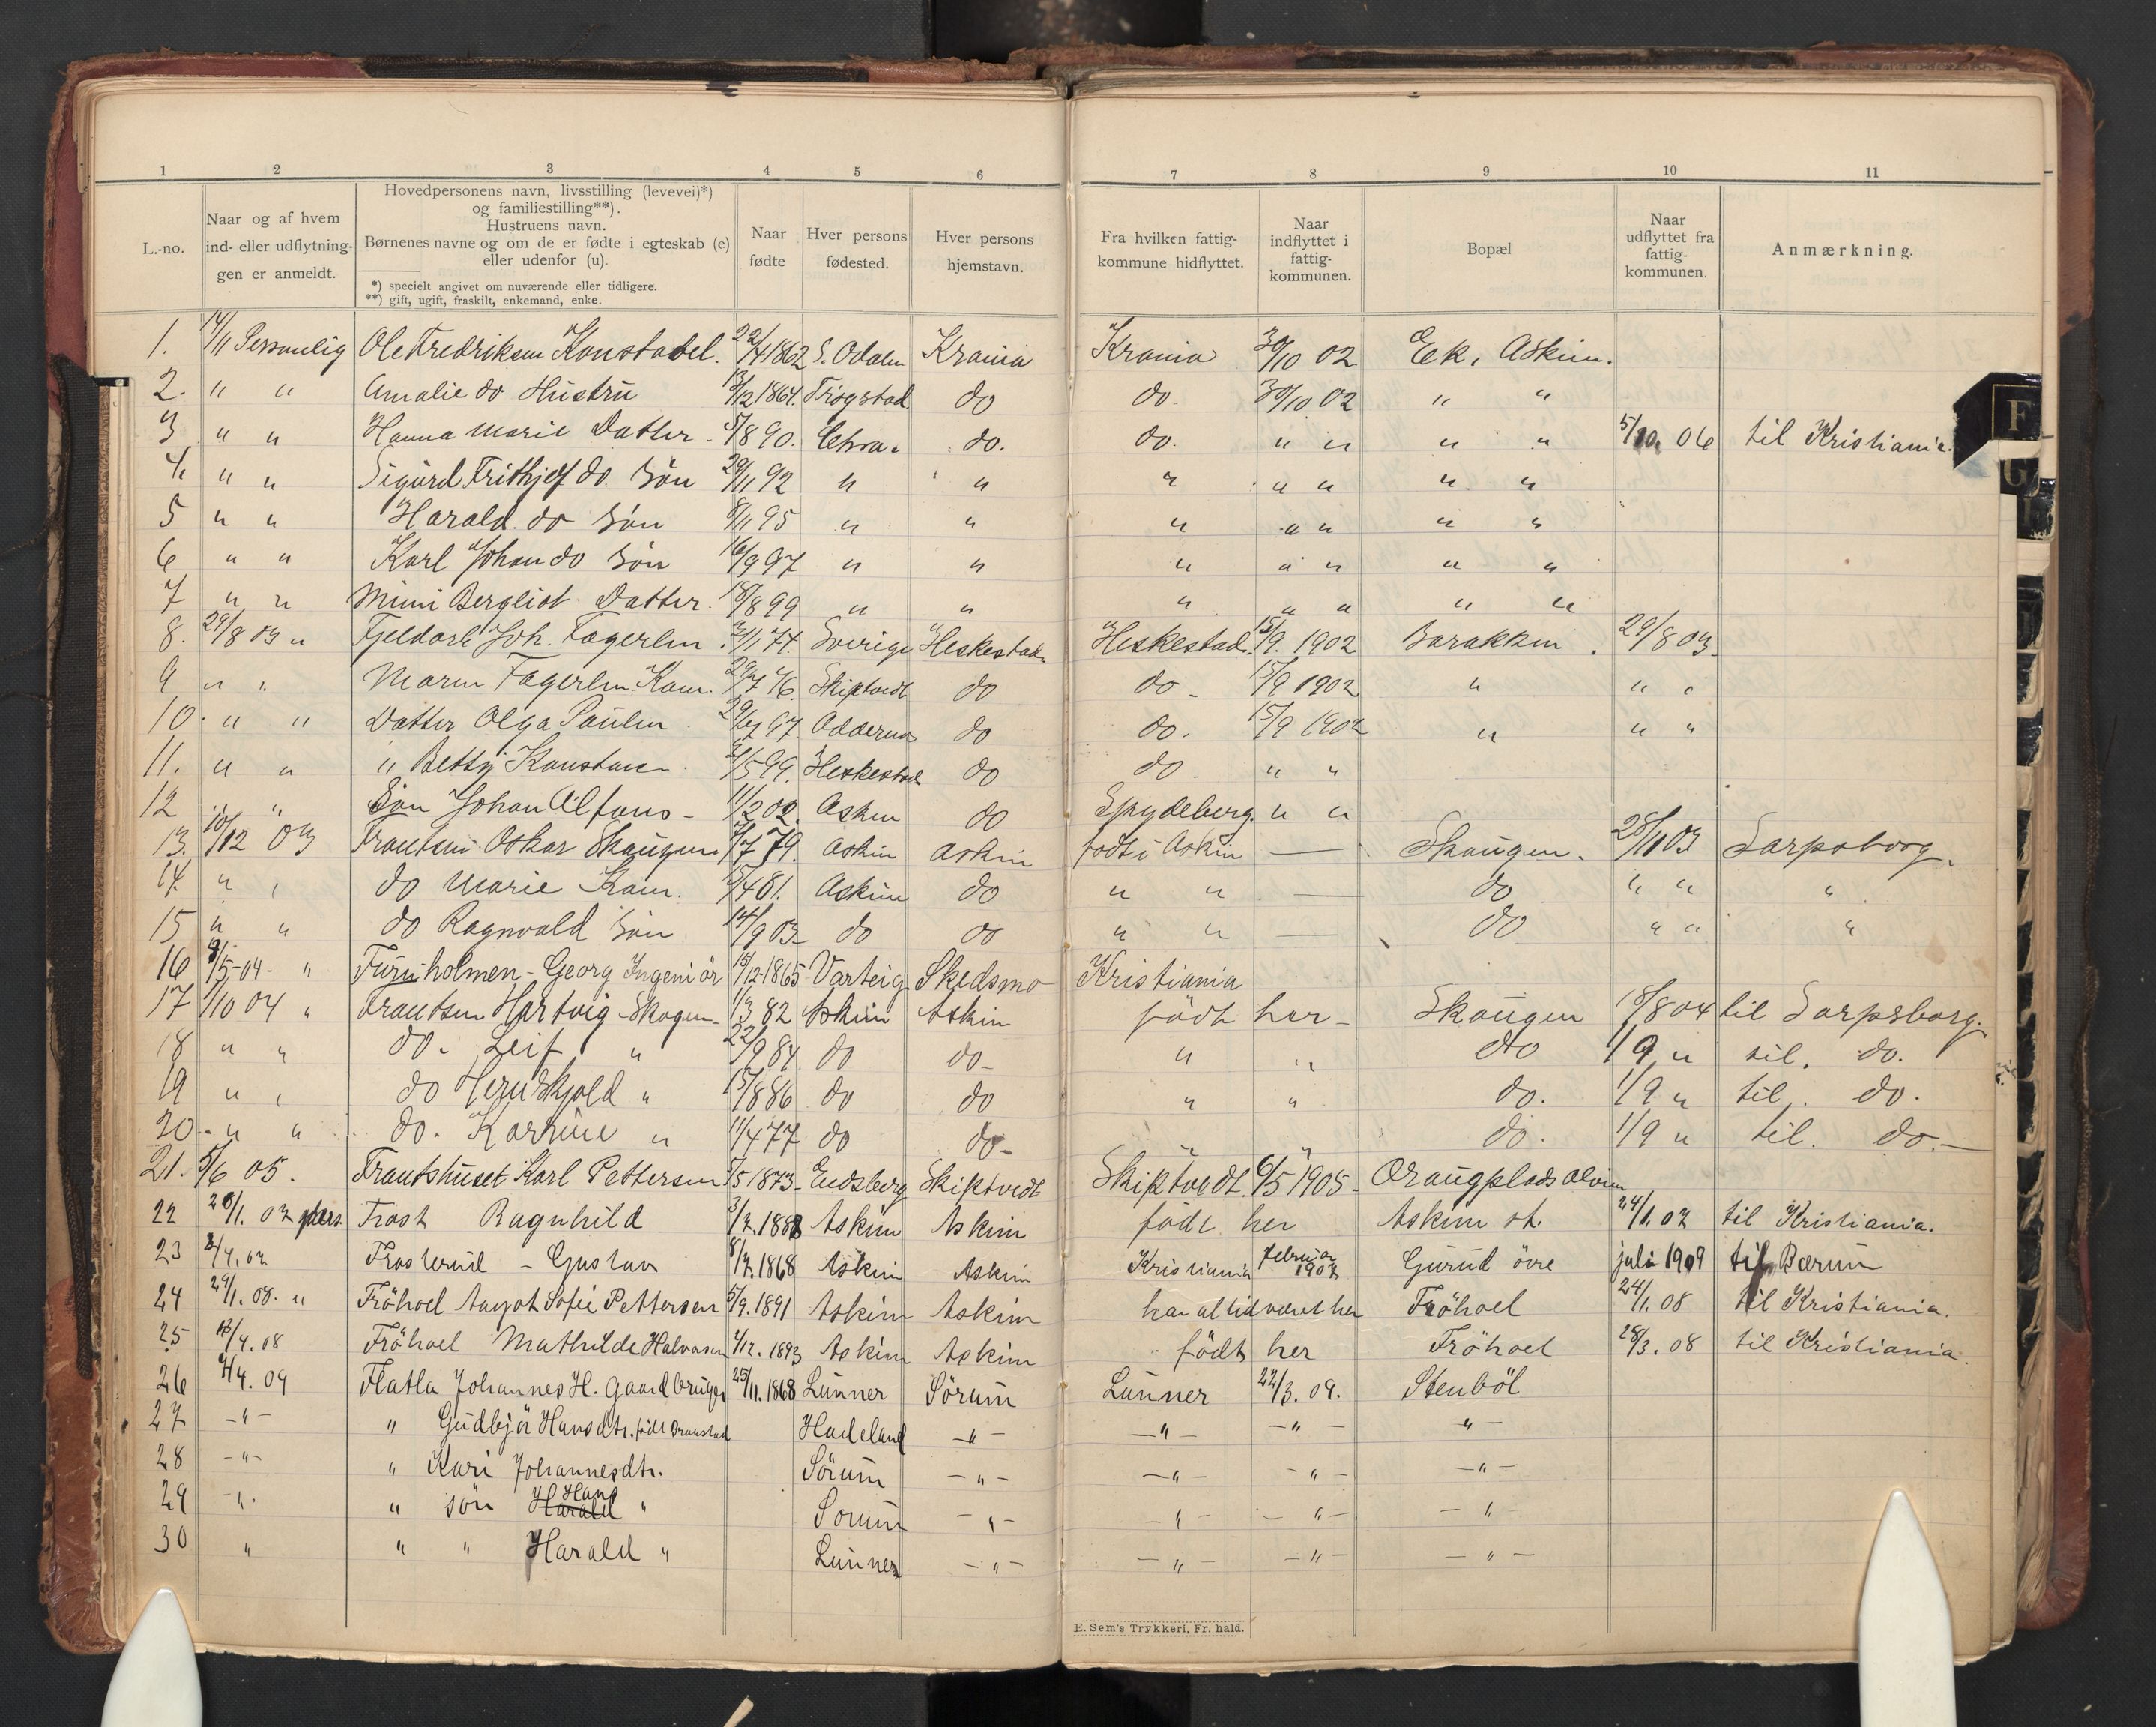 1 2 3 4 5 6 7 8 9 10 11
L.-no.
Naar og af hvem
ind- eller udflytning-
gen er anmeldt.
Hovedpersonens navn, livsstilling (levevei)*)
og familiestilling**).
Hustruens navn.
Børnenes navne og om de er fødte i egteskab (e)
eller udenfor (u).
*) specielt angivet om nuværende eller tidligere.
**) gift, ugift, fraskilt, enkemand, enke.
Naar
fødte
Hver persons
fødested.
Hver persons
hjemstavn.
Fra hvilken fattig-
kommune hidflyttet.
Naar
indflyttet i
fattig-
kommunen.
Bopæl
Naar
udflyttet fra
fattig-
kommunen.
Anmærkning.
1. 14/11 Personlig Ole Fredriksen Konstadel. 22/4 1862 S. Odalen Krania Krania 30/10 02 Eek, Askim.
2. " " Amalie do Hustru 13/12 1864. Trøgstad do do. 30/10 02 " "
3 " " Hanna Marie Datter 5/8 90. Chra. do. do. " " " " 5/10. 06 til Kristiania.
4. " " Sigurd Frithjof do. Søn 29/11 92 " " " " " " "
5 " " Harald do Søn 8/11 95 " " " " " " "
6 " " Karl Johan do Søn 16/9 97 " " " " " " "
7 " " Mimi Bergliot Datter. 18/8 99 " " " " " " "
8. 29/8 03 " Fjeldarb. Joh. Fagerlen. 2/11 74. Sverige Heskestad Heskestad. 15/9. 1902 Barakken. 29/8 03.
9 " " Maren Fagerlen. Kone. 29/7 76. Skiptvedt do do 15/9 1902 " " "
10. " " Datter Olga Paulen 29/4 97 Oddernes do do. 15/9 1902 " " "
11. " " " Betty Konstanse. 2/5 99. Heskestad do do. " "
12 " " Søn Johan Alfons 11/2 02. Askim do Spydeberg. " "
13. 10/12 03 Frantsen Oskar Skaugen 7/7 79. Askim Askim født i Askim — Skaugen. 28/11 03 Sarpsborg.
14. " " do Marie Kone. 5/4 81. Askim do " " — do " " "
15 " " do Ragnvald Søn 14/9 03 do do " " — do " " "
16 9/5-04- " Furuholmen - Georg Ingeniör 15/12-1865 Varteig Skedsmo Kristiania
17 1/10 04 " Frantsen Hartvig Skogen 1/3 82 Askim Askim født her Skaugen 18/8 04 til Sarpsborg.
18 " " do. Leif " 22/9 84 do do " " do 1/9 " til. do.
19 " " do Herudskjold " 15/8 86 do do " " do. 1/9 " til. do.
20. " " do. Karrine " 11/4 77 do do " " do. 1/9 " til. do.
21. 5/6 05. Frantshuset Karl Pettersen 3/5 1873 Eidsberg Skiptvedt Skiptvedt. 6/5 1905 Oraugplads
22 26/1. 07 pers Frost Ragnhild 3/7. 1888 Askim Askim født her Askim st. 24/1. 07 til Kristiania.
23 3/4. 07 Frosterud - Gustav 8/7. 1868 Askim Askim Kristiania februar 1907 Gurud övre juli 1909 til Bærum
24 29/1. 08. " Fröhoel Aagot Sofie Pettersen 5/9. 1891 Askim Askim har altid været her Fröhoel 24/1. 08 til Kristiania.
25 13/4. 08 Fröhoel Mathilde Halvorsen 4/12. 1893 Askim Askim født her Fröhoel 28/3. 08 til Kristiania.
26 4/4. 09 Flatla Johannes H. Gaardbruger 25/11. 1868 Lunner Sörum Lunner 22/3. 09. Stenböl
27 -"- " Gudbjör Hansdtr. född Hadeland -"- -"- -"- -"-
28 -"- " Kari Johannesdtr. Sörum -"- -"- -"- -"-
29 -"- " sön Harald Hans " Sorum -"- -"- -"- -"-
30 " " " Harald " Lunner -"- -"- -"- -"-
E. Sem's Trykkeri, Fr. hald.
F
G